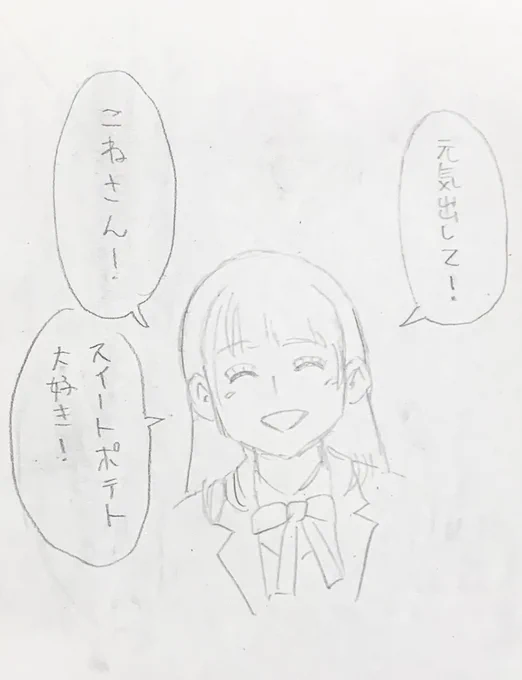 元気出して!
こねさん!
スイートポテト
大好き!